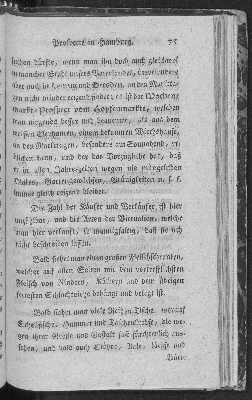 Prospecte in Hamburg. 75
suchen dürfte, wenn man ihn doch auch gleichwol
in mancher Stadt unsers Vaterlandes,
aber auch in Leipzig und Dresden, an den
zeiten nicht minder reizend findet; es ist der Wochen
markts-Prospect vom Hopfenmarkte, welchen
man nirgends besser und bequemer, als aus dem
weißen Elephanten, einem bekannten Wirthshause,
an den Markttagen, besonders am Sonnabend,
kann, und der das Vorzügliche hat, daß
er in allen Jahreszeiten wegen nie mangelnden
Obstes, Gartengewächsen, Grünigkeiten u. s. f.
immer gleich reizend bleibet.
Die Zahl der Käufer und Verkäufer ist hier
ungezählt, und die Arten der Victualien, welche
man hier verkauft, so mannigfaltig, daß sie sich
nicht beschreiben lassen.
Bald siehet man einen großen Fleischschrangen,
welcher auf allen Seiten mit dem vortreflichsten
Fleisch von Rindern, Kälbern und dem übrigen
Schlachtviehe behängt und belegt ist.
Bald siehet man viele Reihen Tische, worauf
Schellfische, Hummer und Taschenkrebse, die we-
gen ihrer Größe und Gestalt fast fürchterlich aus-
sehen, und bald auch Stöhre, Aale, Lachse und
Bütte